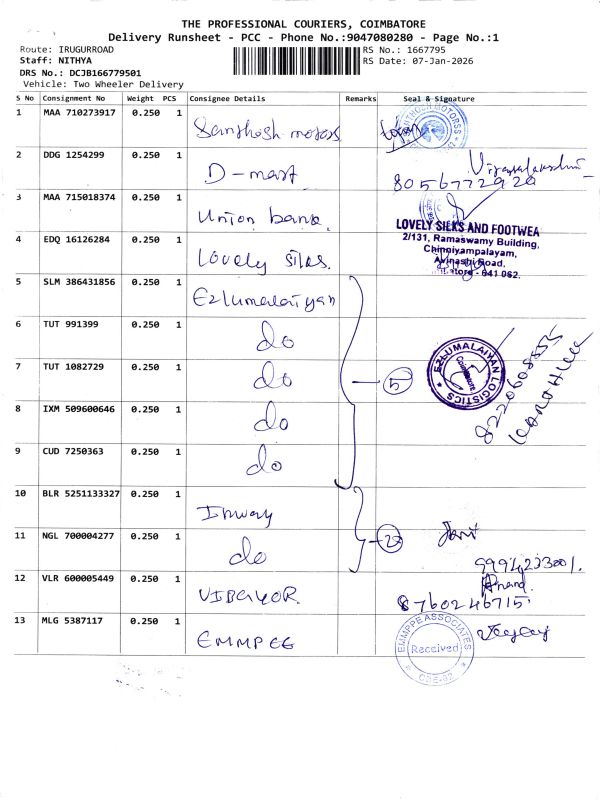 THE PROFESSIONAL COURIERS, COIMBATORE
Delivery Runsheet - PCC - Phone No.:9047080280 - Page No.:1
Route: IRUGURROAD
RS No.: 1667795
Staff: NITHYA
RS Date: 07-Jan-2026
DRS No.: DCJB166779501
Vehicle: Two Wheeler Delivery
S No Consignment No Weight PCS Consignee Details Remarks Seal & Signature
1 MAA 710273917 0.250 1 Santhosh motors
2 DDG 1254299 0.250 1 D-mart
8056772920
3 MAA 715018374 0.250 1 Union bank
LOVELY SILKS AND FOOTWEA
2/131, Ramaswamy Building,
Chinniyampalayam,
Avinashi Road,
641 062.
4 EDQ 16126284 0.250 1 Lovely silks.
5 SLM 386431856 0.250 1 Ezlumalaiyan
6 TUT 991399 0.250 1 do
7 TUT 1082729 0.250 1 do
5
EZLUMALAIYAN LOGISTICS
Coimbatore
8220608555
8 IXM 509600646 0.250 1 do
9 CUD 7250363 0.250 1 do
10 BLR 5251133327 0.250 1 Inway
11 NGL 700004277 0.250 1 do
9994233001.
12 VLR 600005449 0.250 1 VIBGYOR
Anand.
8760246715
13 MLG 5387117 0.250 1 EMMPEE
EMMPPE ASSOCIATES
Received
CBE-62